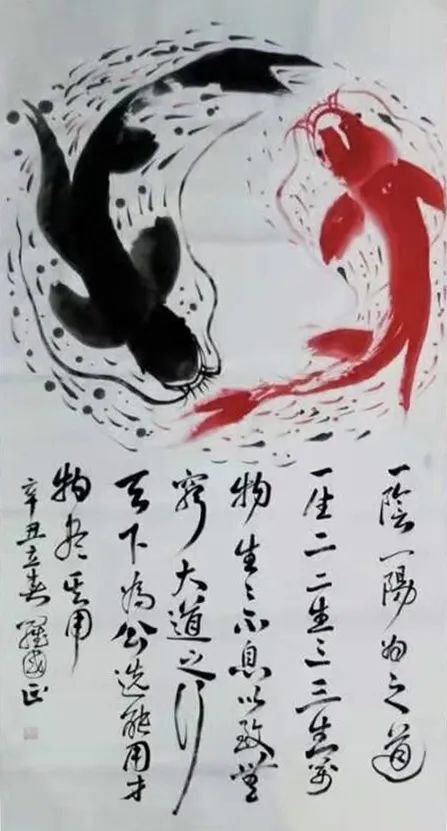 一陰一陽為之道
一生二二生三三生萬
物生生不息以致無
窮大道之行
天下為公選能用才
物盡其用
辛丑立春羅國正